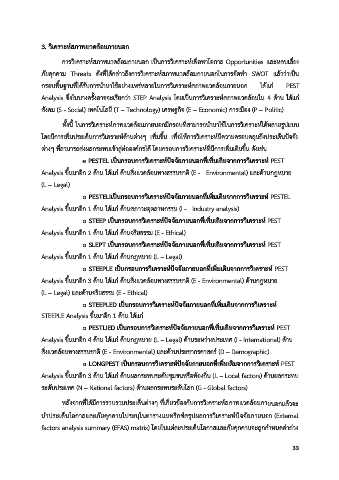 3. วิเคราะห์สภาพแวดล้อมภายนอก
การวิเคราะห์สภาพแวดล้อมภายนอก เป็นการวิเคราะห์เพื่อหาโอกาส Opportunities และหลบเลี่ยง
ภัยคุกคาม Threats ดังที่ได้กล่าวถึงการวิเคราะห์สภาพแวดล้อมภายนอกในการจัดทำ SWOT แล้วว่าเป็น
กรอบพื้นฐานที่ได้รับการนำมาใช้อย่างแพร่หลายในการวิเคราะห์สภาพแวดล้อมภายนอก ได้แก่ PEST
Analysis ซึ่งในบางครั้งอาจจะเรียกว่า STEP Analysis โดยเป็นการวิเคราะห์สภาพแวดล้อมใน 4 ด้าน ได้แก่
สังคม (S - Social) เทคโนโลยี (T – Technology) เศรษฐกิจ (E – Economic) การเมือง (P – Politic)
ทั้งนี้ ในการวิเคราะห์สภาพแวดล้อมภายนอกมีกรอบที่สามารถนำมาใช้ในการวิเคราะห์ได้หลายรูปแบบ
โดยมีการเพิ่มประเด็นการวิเคราะห์ด้านต่างๆ เพิ่มขึ้น เพื่อให้การวิเคราะห์มีความครอบคลุมถึงประเด็นปัจจัย
ต่างๆ ที่อาจมากระทบเข้าสู่องค์กรได้ โดยกรอบการวิเคราะห์ที่มีการเพิ่มเติมขึ้น ดังเช่น
¤ PESTEL เป็นกรอบการวิเคราะห์ปัจจัยภายนอกที่เพิ่มเติมจากการวิเคราะห์ PEST
Analysis ขึ้นมาอีก 2 ด้าน ได้แก่ ด้านสิ่งแวดล้อมทางธรรมชาติ (E - Environmental) และด้านกฎหมาย
(L – Legal)
¤ PESTELI เป็นกรอบการวิเคราะห์ปัจจัยภายนอกที่เพิ่มเติมจากการวิเคราะห์ PESTEL
Analysis ขึ้นมาอีก 1 ด้าน ได้แก่ ด้านสภาวะอุตสาหกรรม (I – Industry analysis)
¤ STEEP เป็นกรอบการวิเคราะห์ปัจจัยภายนอกที่เพิ่มเติมจากการวิเคราะห์ PEST
Analysis ขึ้นมาอีก 1 ด้าน ได้แก่ ด้านจริยธรรม (E - Ethical)
¤ SLEPT เป็นกรอบการวิเคราะห์ปัจจัยภายนอกที่เพิ่มเติมจากการวิเคราะห์ PEST
Analysis ขึ้นมาอีก 1 ด้าน ได้แก่ ด้านกฎหมาย (L – Legal)
¤ STEEPLE เป็นกรอบการวิเคราะห์ปัจจัยภายนอกที่เพิ่มเติมจากการวิเคราะห์ PEST
Analysis ขึ้นมาอีก 3 ด้าน ได้แก่ ด้านสิ่งแวดล้อมทางธรรมชาติ (E - Environmental) ด้านกฎหมาย
(L – Legal) และด้านจริยธรรม (E - Ethical)
¤ STEEPLED เป็นกรอบการวิเคราะห์ปัจจัยภายนอกที่เพิ่มเติมจากการวิเคราะห์
STEEPLE Analysis ขึ้นมาอีก 1 ด้าน ได้แก่
¤ PESTLIED เป็นกรอบการวิเคราะห์ปัจจัยภายนอกที่เพิ่มเติมจากการวิเคราะห์ PEST
Analysis ขึ้นมาอีก 4 ด้าน ได้แก่ ด้านกฎหมาย (L – Legal) ด้านระหว่างประเทศ (I - International) ด้าน
สิ่งแวดล้อมทางธรรมชาติ (E - Environmental) และด้านประชากรศาสตร์ (D – Demographic)
¤ LONGPEST เป็นกรอบการวิเคราะห์ปัจจัยภายนอกที่เพิ่มเติมจากการวิเคราะห์ PEST
Analysis ขึ้นมาอีก 3 ด้าน ได้แก่ ด้านผลกระทบระดับชุมชนหรือท้องถิ่น (L – Local factors) ด้านผลกระทบ
ระดับประเทศ (N – National factors) ด้านผลกระทบระดับโลก (G - Global factors)
หลังจากที่ได้มีการรวบรวมประเด็นต่างๆ ที่เกี่ยวข้องกับการวิเคราะห์สภาพแวดล้อมภายนอกแล้วจะ
นำประเด็นโอกาสและภัยคุกคามไประบุในตารางเมทริกซ์สรุปผลการวิเคราะห์ปัจจัยภายนอก (External
factors analysis summary (EFAS) matrix) โดยในแต่ละประเด็นโอกาสและภัยคุกคามจะถูกกำหนดค่าถ่วง
33